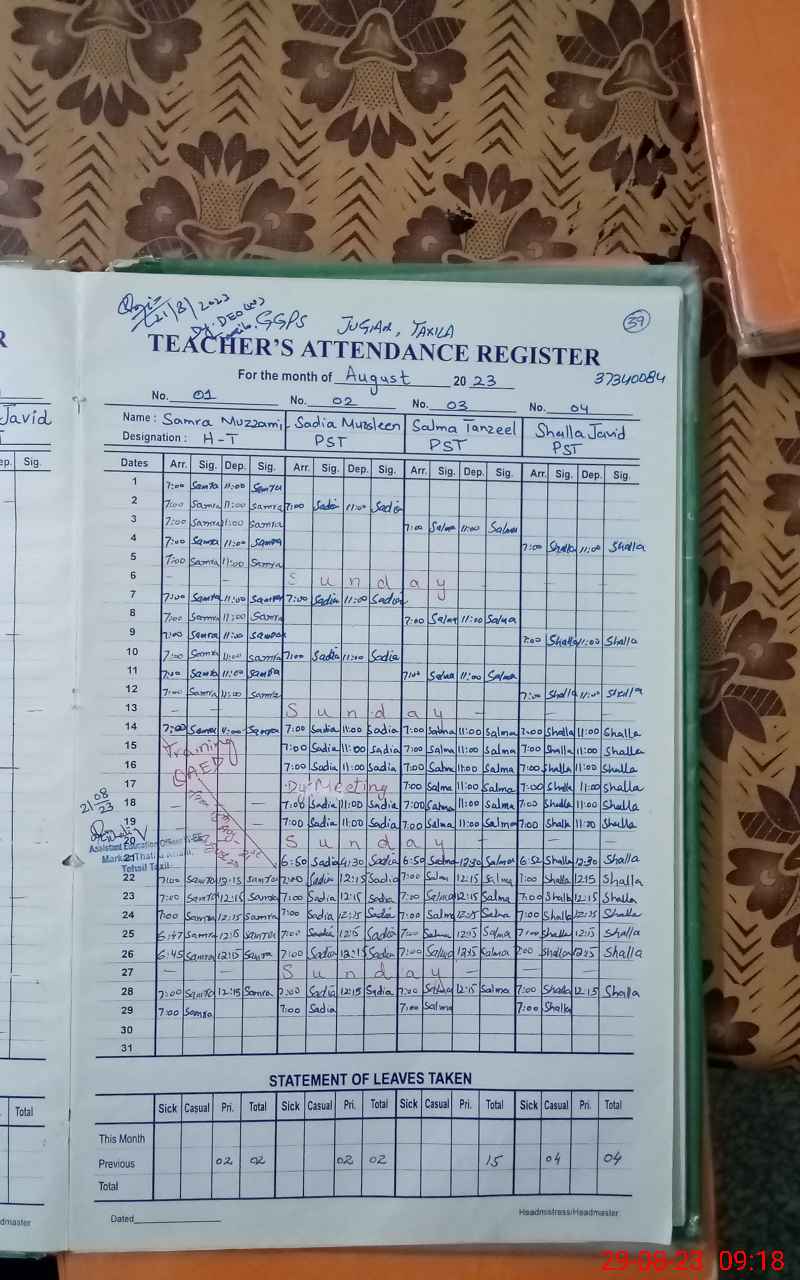 21/8/2023
Dy. DEO (W)
GGPS JUGIAN, TAXILA
39
TEACHER'S ATTENDANCE REGISTER
For the month of August 2023
37340084
No. 01 No. 02 No. 03 No. 04
Name: Samra Muzzamil Sadia Mursleen Salma Tanzeel Shalla Javid
Designation: H-T PST PST PST
Dates Arr. Sig. Dep. Sig. Arr. Sig. Dep. Sig. Arr. Sig. Dep. Sig. Arr. Sig. Dep. Sig.
1 7:00 Samra 11:00 Samra
2 7:00 Samra 11:00 Samra 7:00 Sadia 11:00 Sadia
3 7:00 Samra 11:00 Samra 7:00 Salma 11:00 Salma
4 7:00 Samra 11:00 Samra 7:00 Shalla 11:00 Shalla
5 7:00 Samra 11:00 Samra
6 - - Sunday - -
7 7:00 Samra 11:00 Samra 7:00 Sadia 11:00 Sadia
8 7:00 Samra 11:00 Samra 7:00 Salma 11:00 Salma
9 7:00 Samra 11:00 Samra 7:00 Shalla 11:00 Shalla
10 7:00 Samra 11:00 Samra 7:00 Sadia 11:00 Sadia
11 7:00 Samra 11:00 Samra 7:00 Salma 11:00 Salma
12 7:00 Samra 11:00 Samra 7:00 Shalla 11:00 Shalla
13 - - Sunday - -
14 7:00 Samra 4:00 Samra 7:00 Sadia 11:00 Sadia 7:00 Salma 11:00 Salma 7:00 Shalla 11:00 Shalla
15 Training 7:00 Sadia 11:00 Sadia 7:00 Salma 11:00 Salma 7:00 Shalla 11:00 Shalla
16 QAED 7:00 Sadia 11:00 Sadia 7:00 Salma 11:00 Salma 7:00 Shalla 11:00 Shalla
17 Dy: Meeting 7:00 Salma 11:00 Salma 7:00 Shalla 11:00 Shalla
21-08
23
18 - - 7:00 Sadia 11:00 Sadia 7:00 Salma 11:00 Salma 7:00 Shalla 11:00 Shalla
19 - - 7:00 Sadia 11:00 Sadia 7:00 Salma 11:00 Salma 7:00 Shalla 11:00 Shalla
20 Sunday - -
Assistant Education Officer
Tehsil Taxila
21 6:50 Sadia 4:30 Sadia 6:50 Salma 12:30 Salma 6:52 Shalla 12:30 Shalla
22 7:00 Samra 12:15 Samra 7:00 Sadia 12:15 Sadia 7:00 Salma 12:15 Salma 7:00 Shalla 12:15 Shalla
23 7:00 Samra 12:15 Samra 7:00 Sadia 12:15 Sadia 7:00 Salma 12:15 Salma 7:00 Shalla 12:15 Shalla
24 7:00 Samra 12:15 Samra 7:00 Sadia 12:15 Sadia 7:00 Salma 12:15 Salma 7:00 Shalla 12:15 Shalla
25 6:47 Samra 12:15 Samra 7:00 Sadia 12:15 Sadia 7:00 Salma 12:15 Salma 7:00 Shalla 12:15 Shalla
26 6:45 Samra 12:15 Samra 7:00 Sadia 12:15 Sadia 7:00 Salma 12:15 Salma 7:00 Shalla 12:15 Shalla
27 - - Sunday - -
28 7:00 Samra 12:15 Samra 7:00 Sadia 12:15 Sadia 7:00 Salma 12:15 Salma 7:00 Shalla 12:15 Shalla
29 7:00 Samra 7:00 Sadia 7:00 Salma 7:00 Shalla
30
31
STATEMENT OF LEAVES TAKEN
Sick Casual Pri. Total Sick Casual Pri. Total Sick Casual Pri. Total Sick Casual Pri. Total
This Month
Previous 02 02 02 02 15 04 04
Total
Dated
Headmistress/Headmaster
R
Javid
ep. Sig.
Total
dmaster
29-08-23 09:18